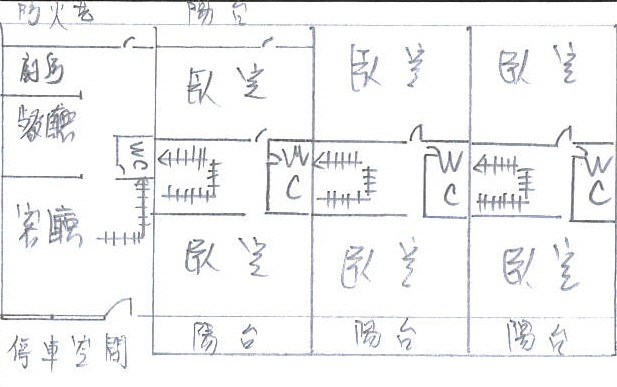 防火巷 陽台
廚房
臥室 臥室 臥室
餐廳
WC WC WC WC
客廳
臥室 臥室 臥室
停車空間 陽台 陽台 陽台